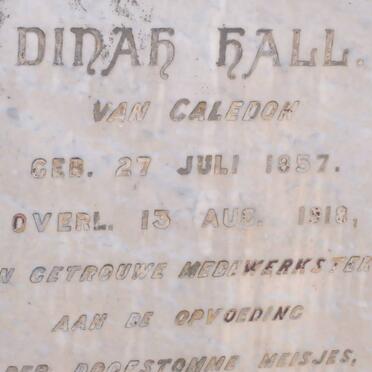 DINAH HALL.
VAN CALEDON
GEB. 27 JULI 1857.
OVERL. 13 AUG. 1918,
N GETROUWE MEDEWERKSTER
AAN DE OPVOEDING
DER DOOFSTOMME MEISJES,